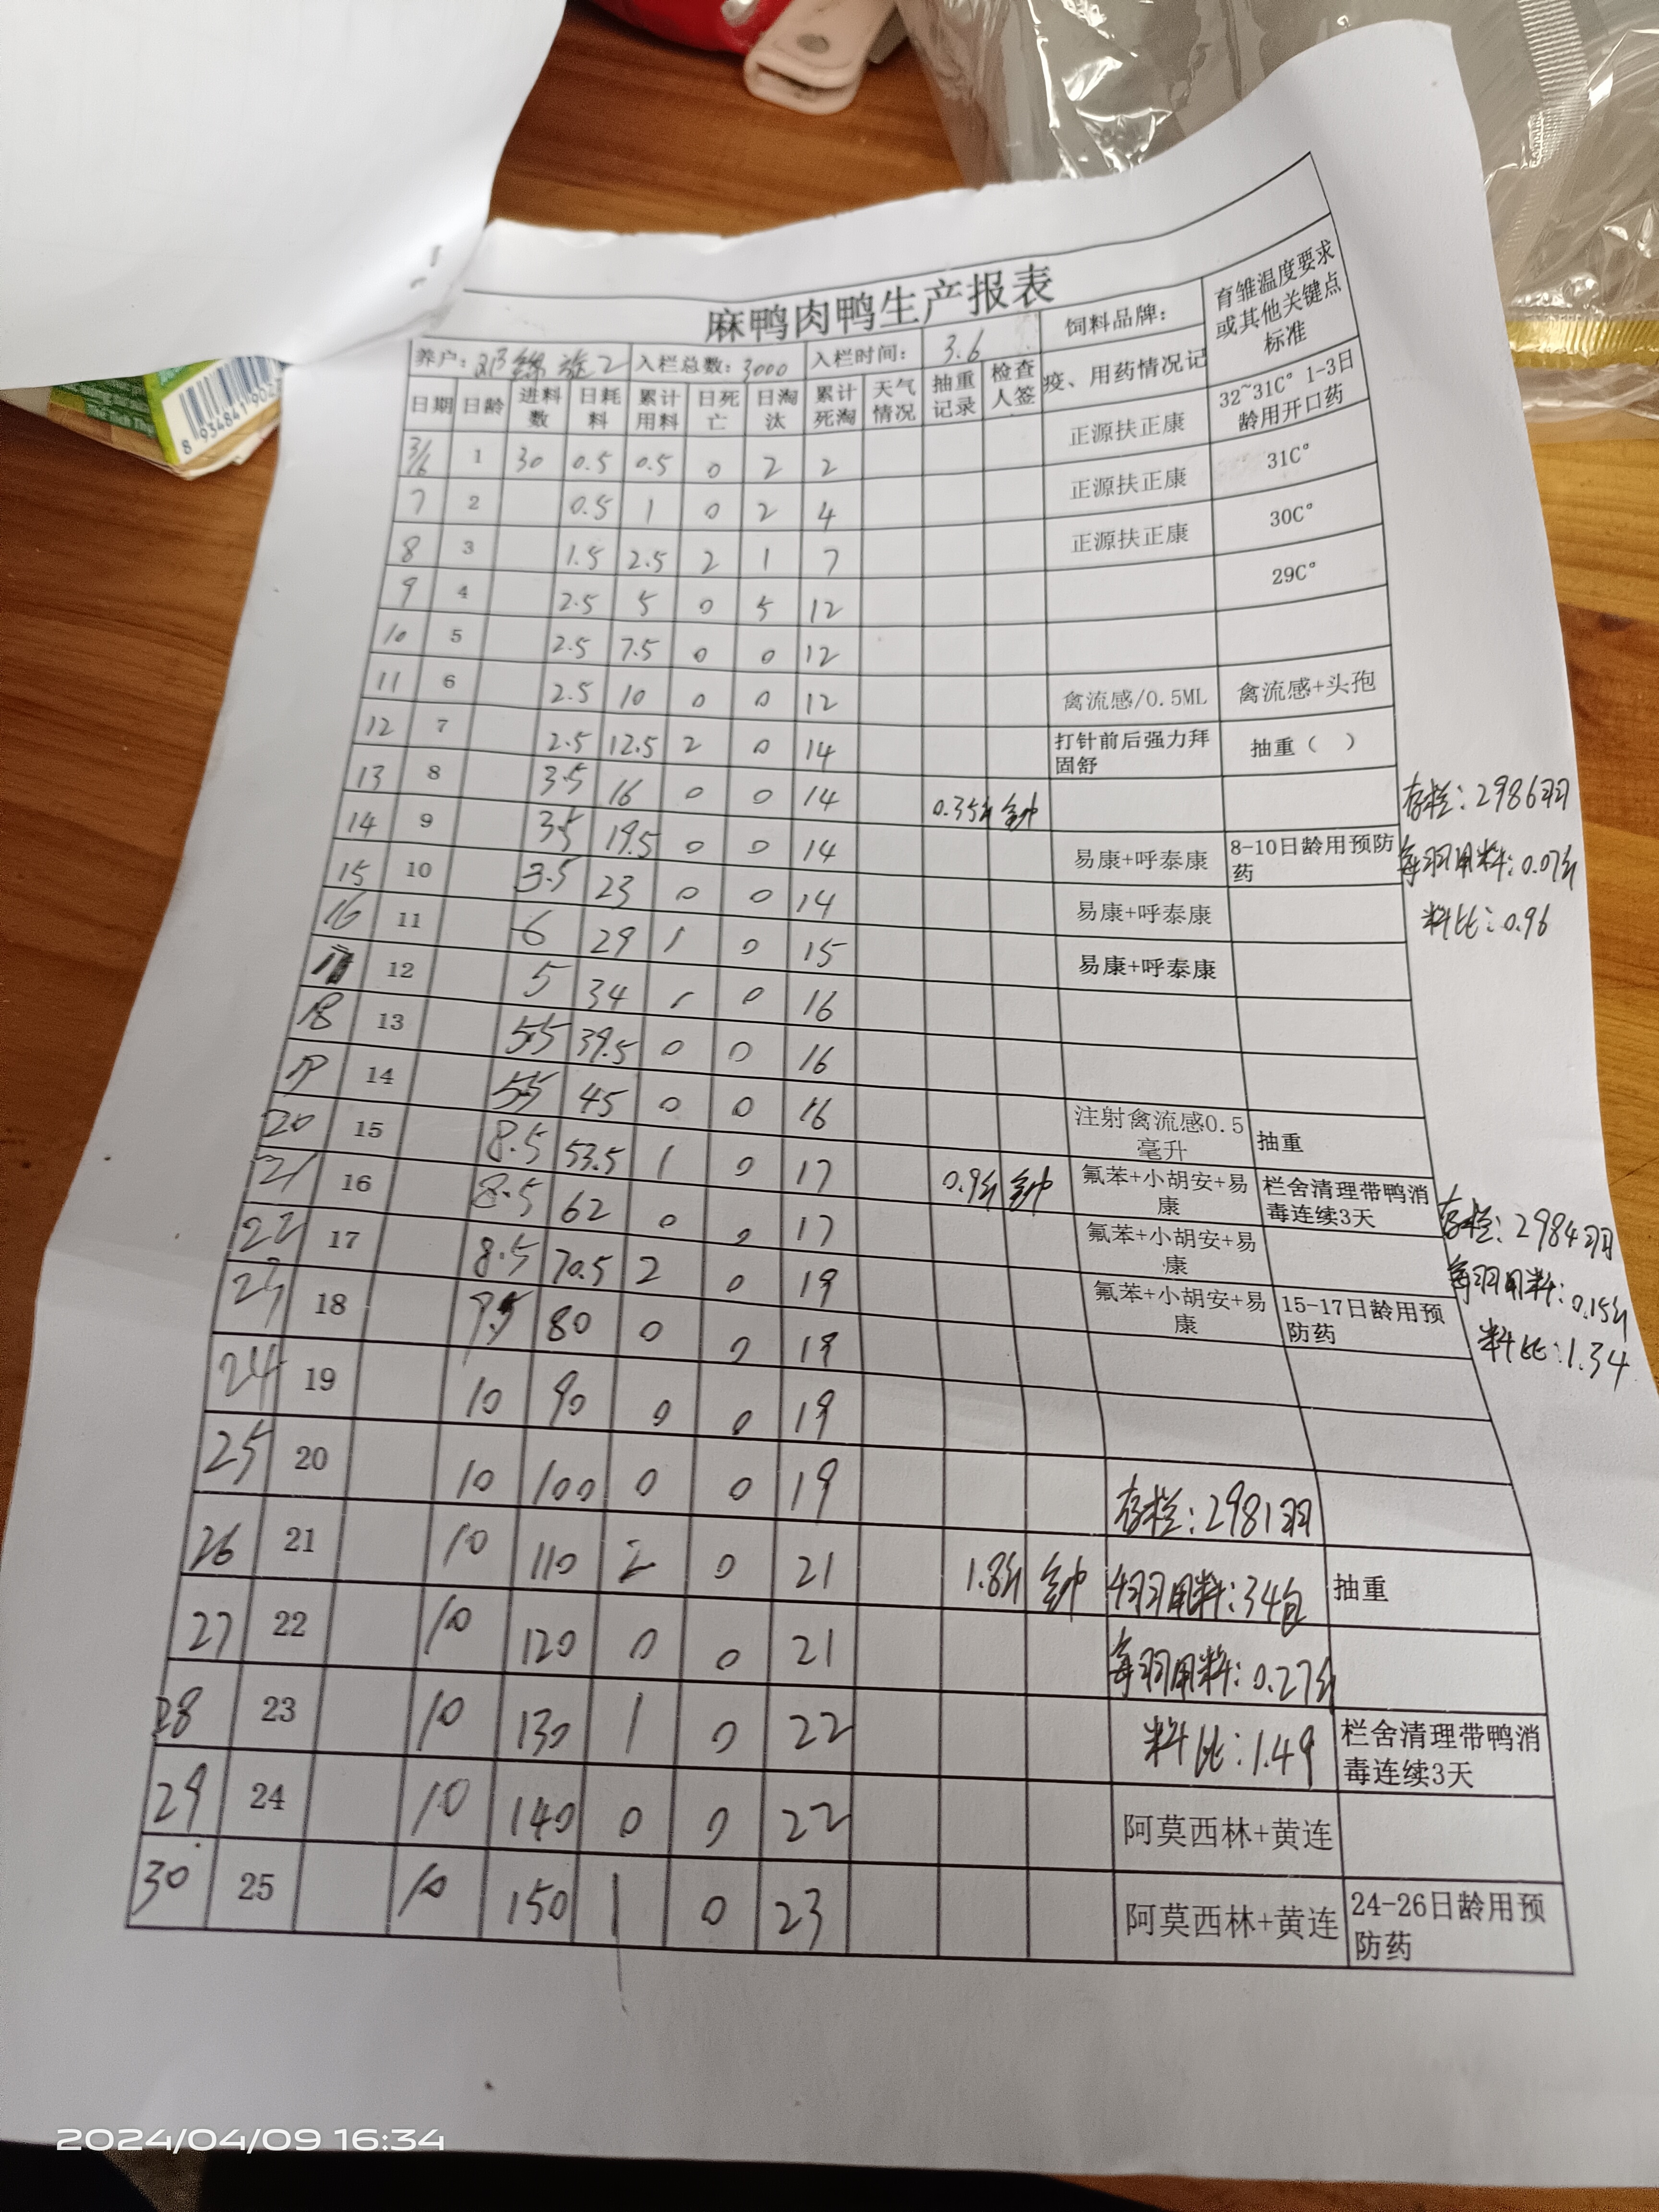 麻鸭肉鸭生产报表
养户: 入栏总数:3000 入栏时间: 3.6 饲料品牌: 育雏温度要求或其他关键点标准
日期 日龄 进料数 日耗料 累计用料 日死亡 日淘汰 累计死淘 天气情况 抽重记录 检查人签 疫、用药情况记
3/6 1 30 0.5 0.5 0 2 2 正源扶正康 32~31C° 1-3日龄用开口药
7 2 0.5 1 0 2 4 正源扶正康 31C°
8 3 1.5 2.5 2 1 7 正源扶正康 30C°
9 4 2.5 5 0 5 12 29C°
10 5 2.5 7.5 0 0 12
11 6 2.5 10 0 0 12 禽流感/0.5ML 禽流感+头孢
12 7 2.5 12.5 2 0 14 打针前后强力拜固舒 抽重（ ）
13 8 3.5 16 0 0 14 0.35斤
存栏:2986羽
14 9 3.5 19.5 0 0 14 易康+呼泰康 8-10日龄用预防药
每羽用料:0.07斤
15 10 3.5 23 0 0 14 易康+呼泰康
料比:0.96
16 11 6 29 1 0 15 易康+呼泰康
12 5 34 1 0 16
18 13 5.5 39.5 0 0 16
19 14 5.5 45 0 0 16 注射禽流感0.5毫升 抽重
20 15 8.5 53.5 1 0 17 0.9斤 氟苯+小胡安+易康 栏舍清理带鸭消毒连续3天
存栏:2984羽
21 16 8.5 62 0 0 17 氟苯+小胡安+易康
每羽用料:0.15斤
22 17 8.5 70.5 2 0 19 氟苯+小胡安+易康 15-17日龄用预防药
料比:1.34
23 18 9.5 80 0 0 19
24 19 10 90 0 0 19
25 20 10 100 0 0 19 存栏:2981羽
26 21 10 110 2 0 21 1.8斤 用料:34包 抽重
27 22 10 120 0 0 21 每羽用料:0.27斤
28 23 10 130 1 0 22 料比:1.49 栏舍清理带鸭消毒连续3天
29 24 10 140 0 0 22 阿莫西林+黄连
30 25 10 150 1 0 23 阿莫西林+黄连 24-26日龄用预防药
8 934841 902
2024/04/09 16:34